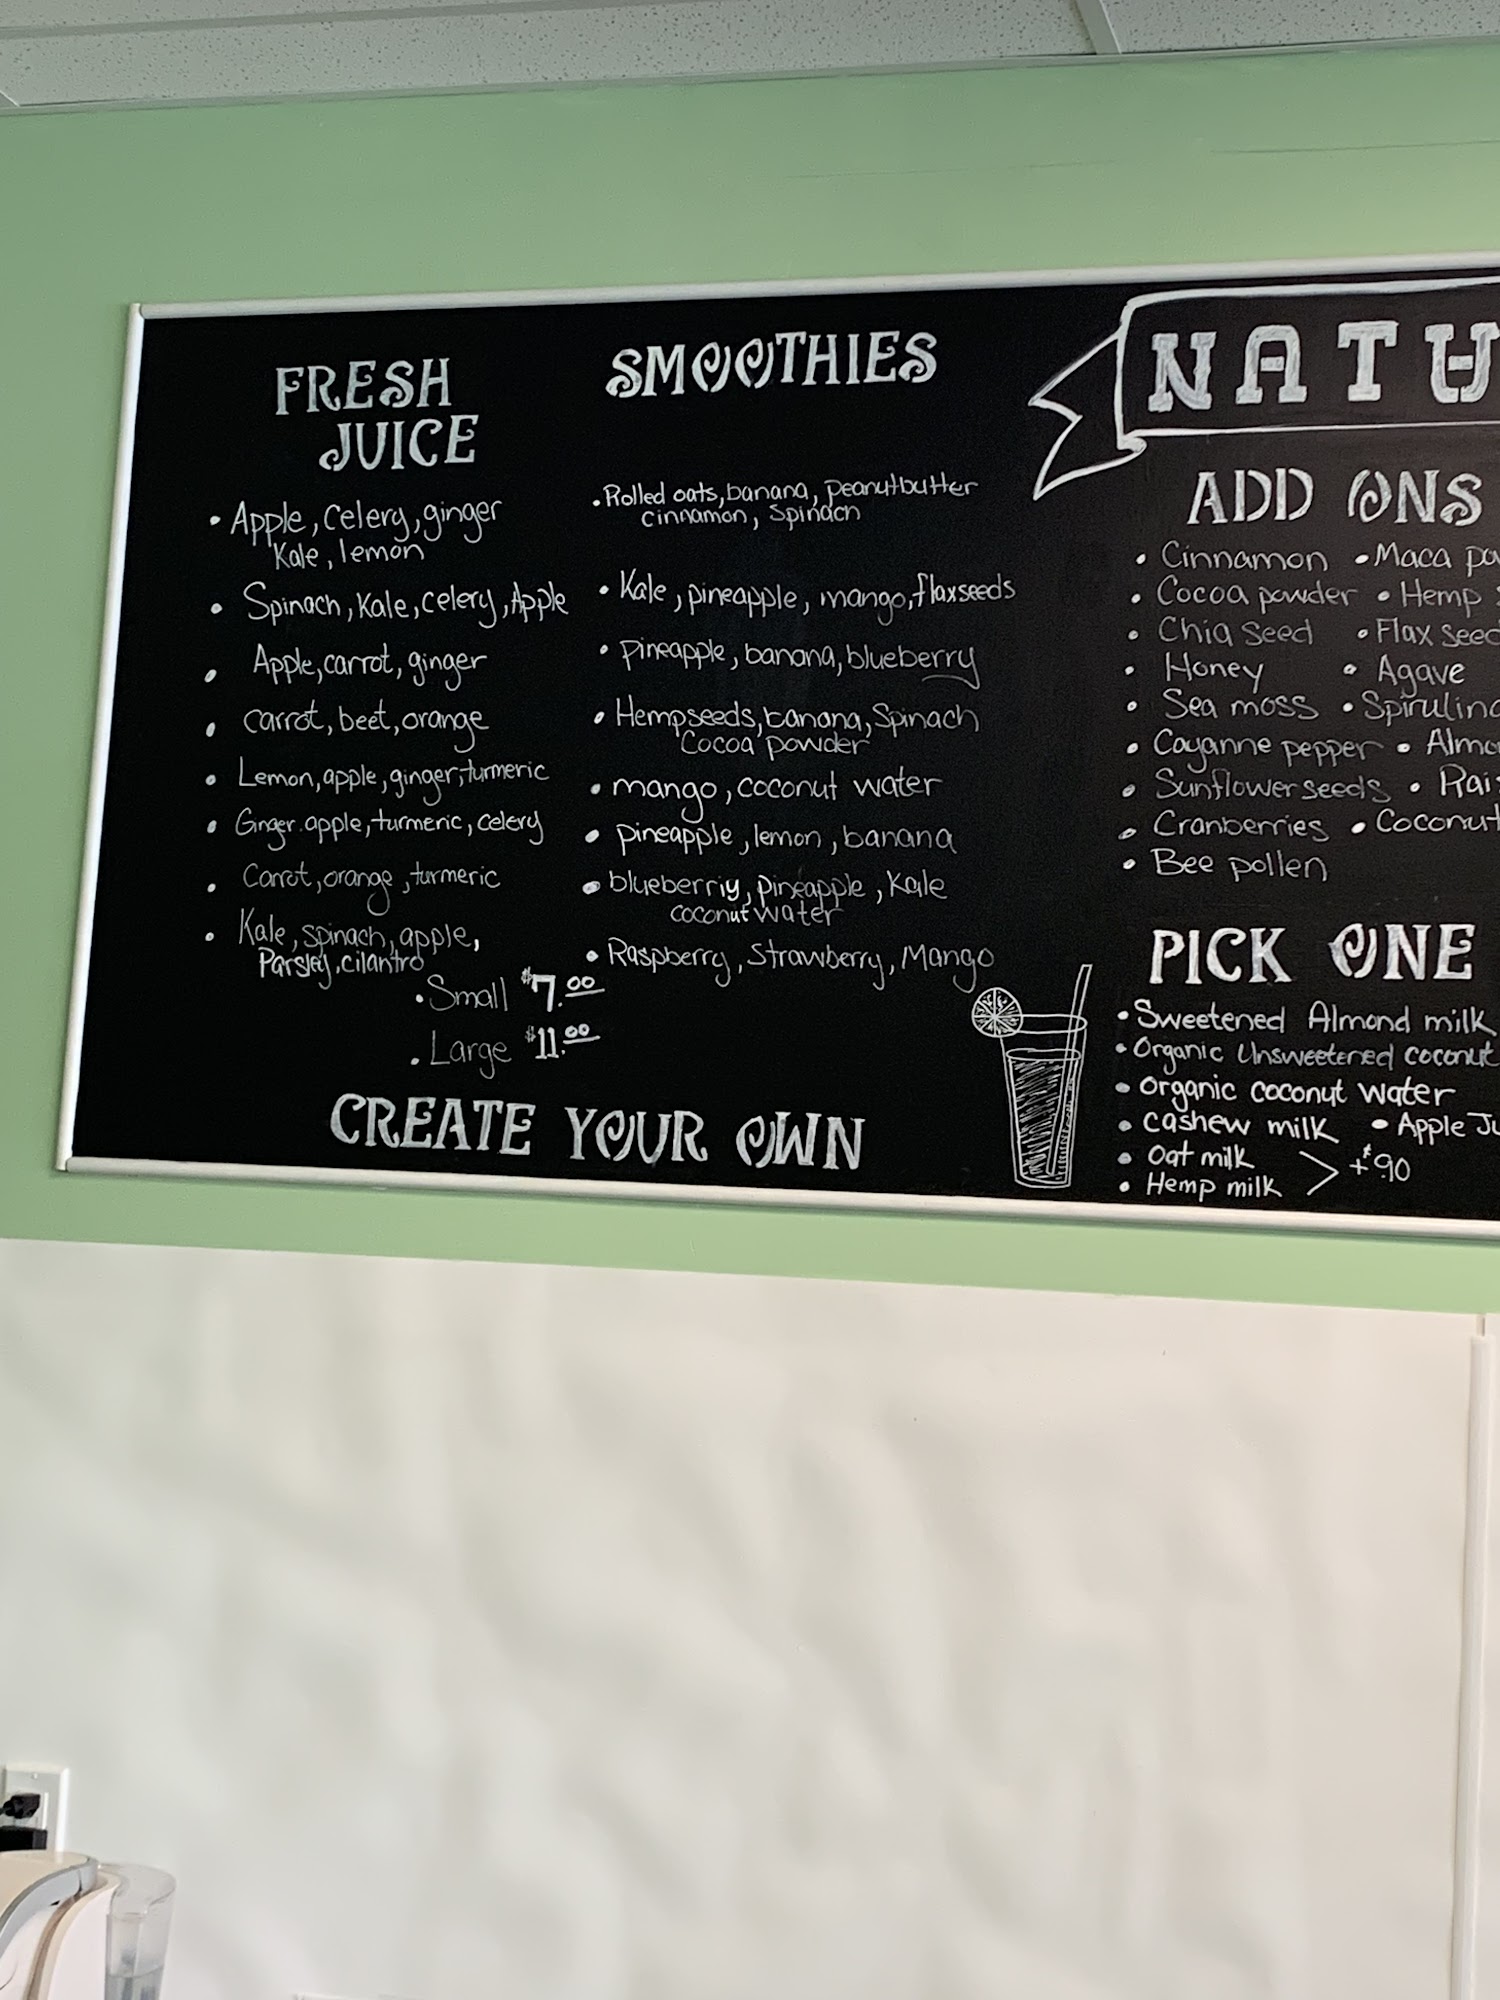 FRESH
JUICE
• Apple, celery, ginger
Kale, lemon
• Spinach, Kale, celery, Apple
• Apple, carrot, ginger
• carrot, beet, orange
• Lemon, apple, ginger, turmeric
• Ginger. apple, turmeric, celery
• Carrot, orange, turmeric
• Kale, spinach, apple,
Parsley, cilantro
SMOOTHIES
• Rolled oats, banana, peanutbutter
cinnamon, spinach
• Kale, pineapple, mango, flaxseeds
• pineapple, banana, blueberry
• Hempseeds, banana, Spinach
Cocoa powder
• mango, coconut water
• pineapple, lemon, banana
• blueberriy, pineapple, Kale
coconut water
• Raspberry, Strawberry, Mango
• Small $7.00
• Large $11.00
CREATE YOUR OWN
NATU
ADD ONS
• Cinnamon • Maca
• Cocoa powder • Hemp
• Chia Seed • Flax Seed
• Honey • Agave
• Sea moss • Spirulina
• Cayanne pepper •
• Sunflower seeds •
• Cranberries • Coconut
• Bee pollen
PICK ONE
• Sweetened Almond milk
• Organic Unsweetened coconut
• Organic coconut water
• cashew milk • Apple
• Oat milk
• Hemp milk > +$.90